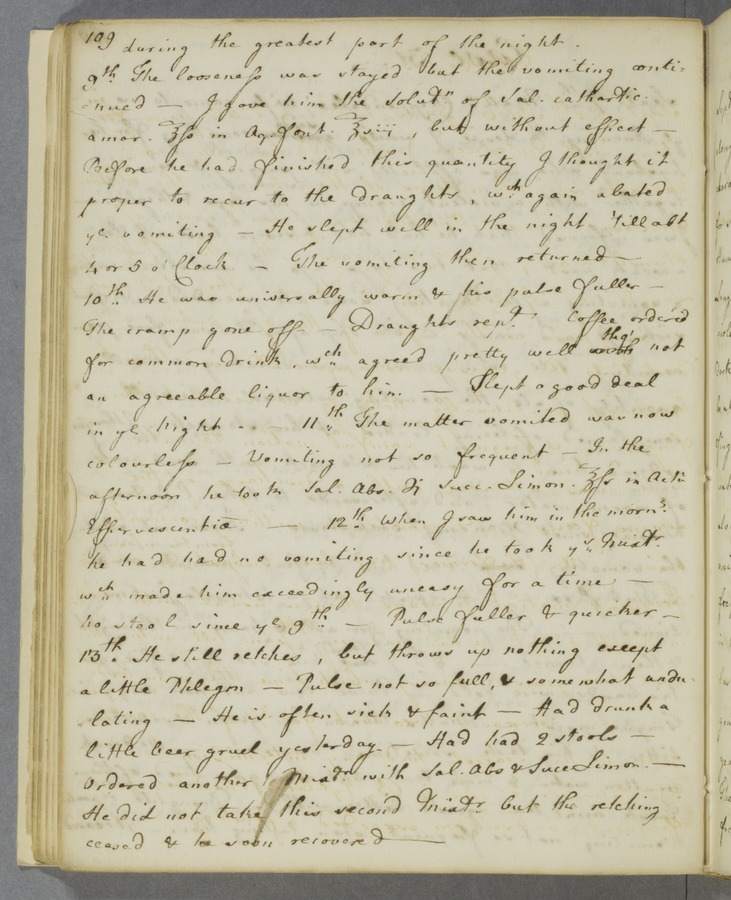 109 during the greatest part of the night.
9th The looseness was stayed but the vomiting conti=
=nued — I gave him the Solutn of Sal. cathartic.
amar. ℥ss in Aq. font. ℥viij, but without effect —
Before he had finished this quantity I thought it
proper to recur to the draughts, wch again abated
ye vomiting — He slept well in the night 'till abt
4 or 5 o'Clock — The vomiting then returned —
10th He was universally warm & his pulse fuller —
The cramp gone off — Draughts rept. Coffee ordered
for common drink, wch agreed pretty well tho' not
an agreeable liquor to him. — Slept a good deal
in ye Night — 11th The matter vomited was now
colourless — Vomiting not so frequent — In the
afternoon he took Sal. Abs. Succ. Limon. ℥ss in Actû
Effervescentiæ — 12th When I saw him in the morng.
he had had no vomiting since he took ys Mixtr.
wch made him exceedingly uneasy for a time —
No stool since ye 9th — Pulse fuller & quicker —
13th He still retches, but throws up nothing except
a little Phlegm — Pulse not so full, & somewhat undu
-lating — He is often sick & faint — Had drunk a
little beer gruel yesterday — Had had 2 stools —
Ordered another Mixtr with Sal. Abs & Succ Limon. —
He did not take this second Mixtr but the retching
ceased & he soon recovered —